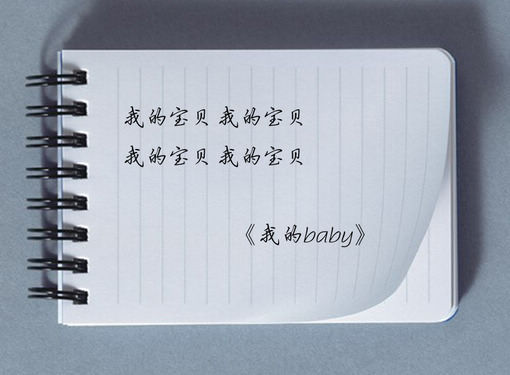 我的宝贝 我的宝贝
我的宝贝 我的宝贝
《我的baby》